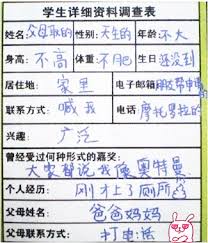 学生详细资料调查表
姓名:父母取的 性别:天生的 年龄:还不大
身高:不高 体重:不肥 生日:还没到
居住地:家里 电子邮箱:网管帮申请的
联系方式:喊我 电话:摩托罗拉的
兴趣:广泛
曾经受过何种形式的嘉奖:
大家都说我像奥特曼
个人经历:刚才上了厕所
父母姓名:爸爸妈妈
父母联系方式:打电话